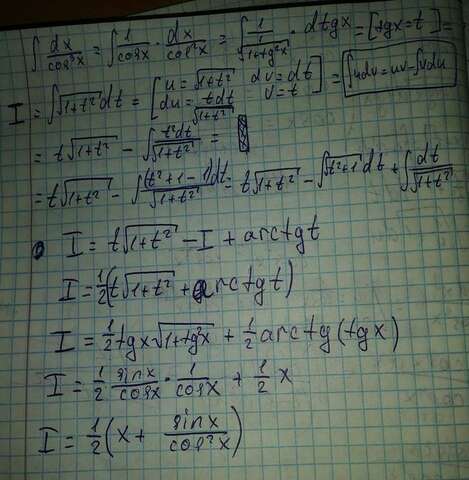 ∫ dx/cos³x = ∫ 1/cosx · dx/cos²x = ∫ 1/(1/√(1+tg²x)) · dtgx = [tgx = t] =
I = ∫√(1+t²) dt = [u = √(1+t²) dv = dt du = tdt/√(1+t²) v = t] = ∫udv = uv - ∫vdu
= t√(1+t²) - ∫ t²dt/√(1+t²) =
= t√(1+t²) - ∫ (t²+1-1)dt/√(1+t²) = t√(1+t²) - ∫√(t²+1) dt + ∫ dt/√(1+t²)
I = t√(1+t²) - I + arctgt
I = 1/2(t√(1+t²) + arctgt)
I = 1/2 tgx√(1+tg²x) + 1/2 arctg(tgx)
I = 1/2 sinx/cosx · 1/cosx + 1/2 x
I = 1/2(x + sinx/cos²x)